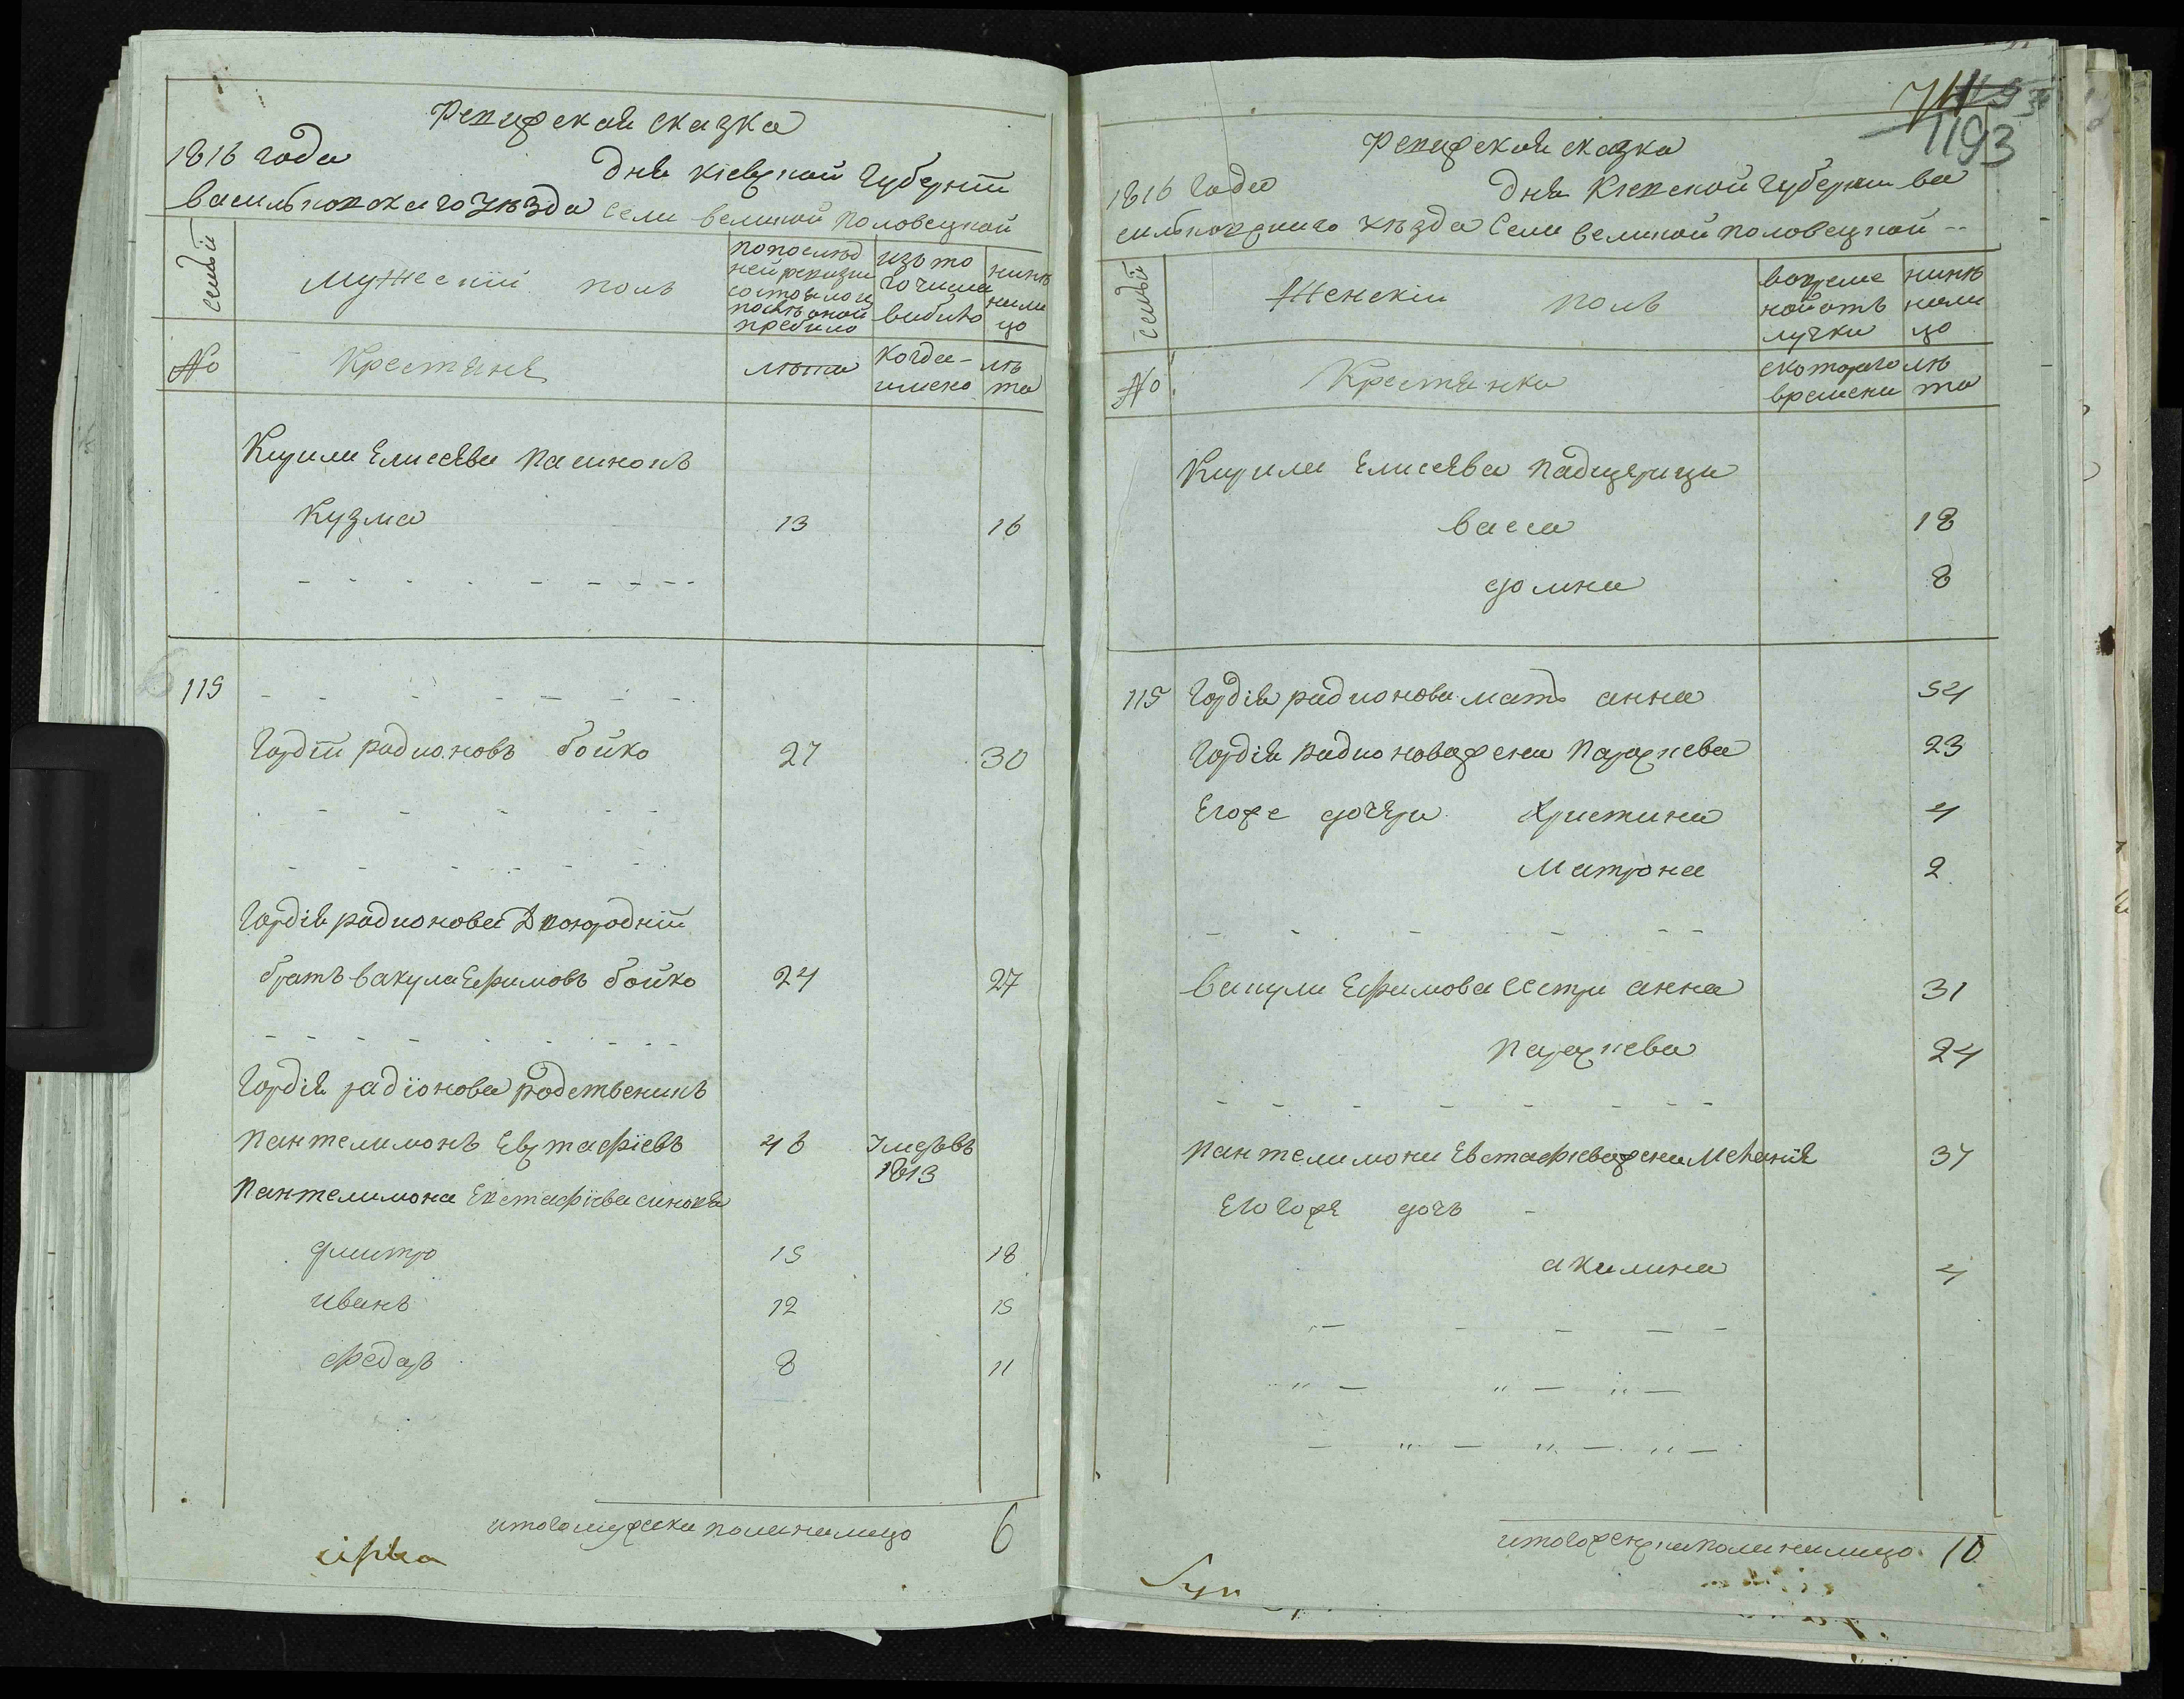 Ревизская сказка
1816 года дня Киевской Губернїи
васильковского Уезда Села великой половецкой
семьи
Мужескїй полъ
по последней ревизии состояло и после оной прибыло
изъ того числа выбыло
ныне на лицо
№
Крестяне
лета
когда имено
лета
Кирила Елисеева пасинокъ
Кузма 13 16
115
Гордїй радионовъ бойко 27 30
Гордїя радионова Двоюродній
братъ вакула Ефимовъ бойко 24 27
Гордїя радїонова родственикъ
Пантелимонъ Евстафїевъ 46 Умеръ въ 1813
Пантелимона Евстафїева сыновя
дмитро 15 18
иванъ 12 15
федоръ 8 11
итого мужеска пола налицо 6
1193
Ревизская сказка
1816 Года дня Киевской Губернии ва
сильковского Уезда Села великой половецкой --
семьи
Женскїй полъ
во временной отлучки
ныне на лицо
№
Крестянки
с которого времени
лета
Кирила Елисеева падщерици
васса 18
домна 8
115 Гордїя радионова мать анна 54
Гордїя радионова жена Параскева 23
Его же дочери Християна 4
Матрона 2
вакули Ефимова сестри анна 31
Параскева 24
Пантелимона Евстафиева жена Меланїя 37
Его же дочь -
акилина 4
итого женска пола налицо 10